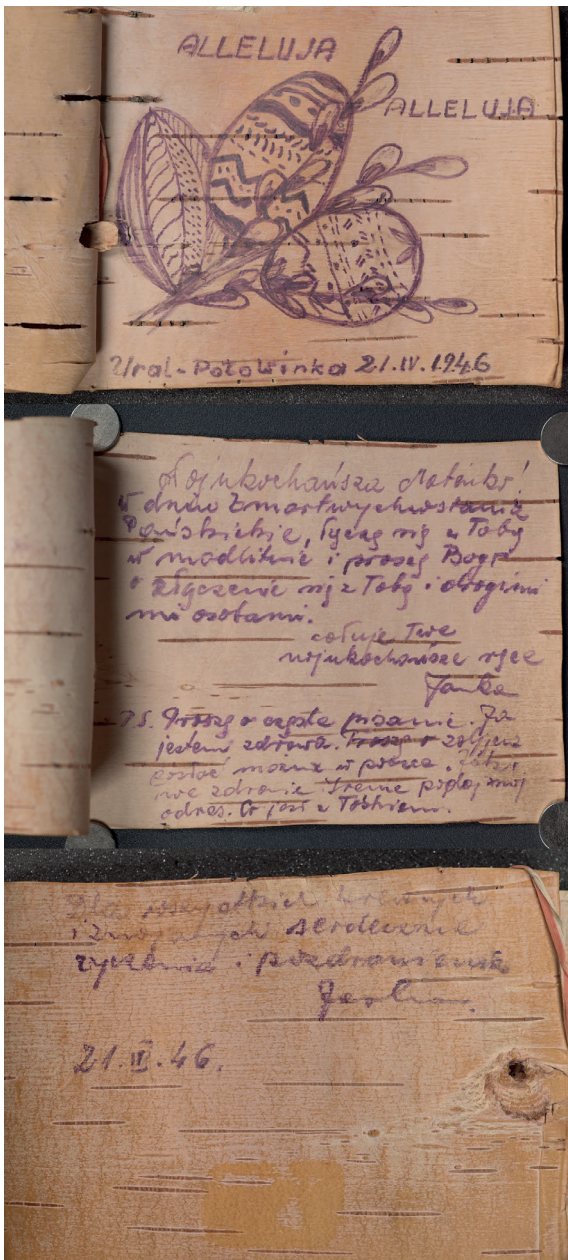 ALLELUJA
ALLELUJA
Ural-Połowinka 21.IV.1946
Najukochańsza Mateńko!
W dniu Zmartwychwstania
Pańskiego, łączę się z Tobą
w modlitwie i proszę Boga
o złączenie się z Tobą i drogimi
mi osobami.
całuję Twe
najukochańsze ręce
Janka
P.S. Proszę o częste pisanie. Ja
jestem zdrowa. Proszę o zdjęcia
posłać można w
zdrowie Irenie podaj mój
adres. Co jest z Tośkiem.
Dla wszystkich krewnych
i znajomych serdeczne
życzenia i pozdrowienia
Janka
21.III.46.